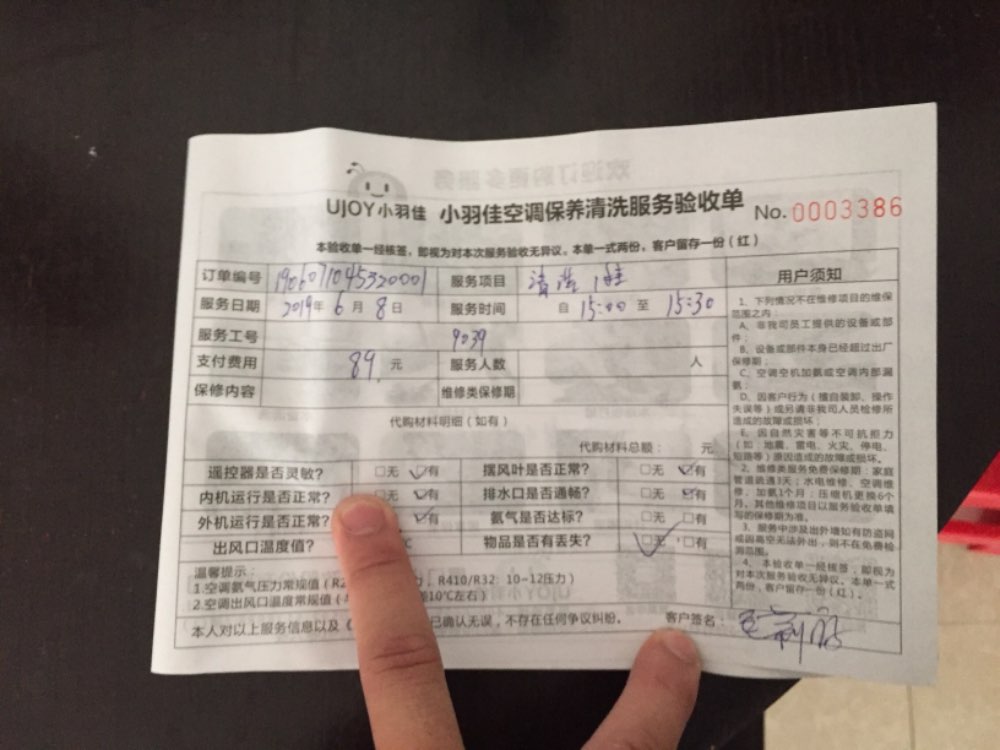 UJOY小羽佳 小羽佳空调保养清洗服务验收单 No.0003386
本验收单一经核签，即视为对本次服务验收无异议。本单一式两份，客户留存一份（红）
订单编号 1906071045320001 服务项目 清洗
服务日期 2019年6月8日 服务时间 自 15:00 至 15:30
服务工号 9039
支付费用 89 元 服务人数 人
保修内容 维修类保修期
代购材料明细（如有）
代购材料总额： 元
遥控器是否灵敏? 无 有 摆风叶是否正常? 无 有
内机运行是否正常? 无 有 排水口是否通畅? 无 有
外机运行是否正常? 有 氨气是否达标? 无 有
出风口温度值? ℃ 物品是否有丢失? 无 有
温馨提示：
1.空调氨气压力常规值（R2 力，R410/R32: 10-12压力）
2.空调出风口温度常规值（ 10℃左右）
本人对以上服务信息以及 已确认无误，不存在任何争议纠纷。 客户签名：
用户须知
1、下列情况不在维修项目的维保
范围之内：
A、非我司员工提供的设备或部
件；
B、设备或部件本身已经超过出厂
保修期；
C、空调空机加氨或空调内部漏
氨；
D、因客户行为（擅自装卸、操作
失误等）或另请非我司人员检修所
造成的故障或损坏；
E、因自然灾害等不可抗拒力
（如：地震、雷电、火灾、停电、
短路等）原因造成的故障或损坏。
2、维修类服务免费保修期：家庭
管道疏通3天；水电维修、空调维
修、加氨1个月；压缩机更换6个
月，其他维修项目以服务验收单填
写的保修期为准。
3、服务中涉及出外墙如有防盗网
或因高空无法外出，则不在免费检
测范围。
4、本验收单一经核签，即视为
对本次服务验收无异议。本单一式
两份，客户留存一份（红）。